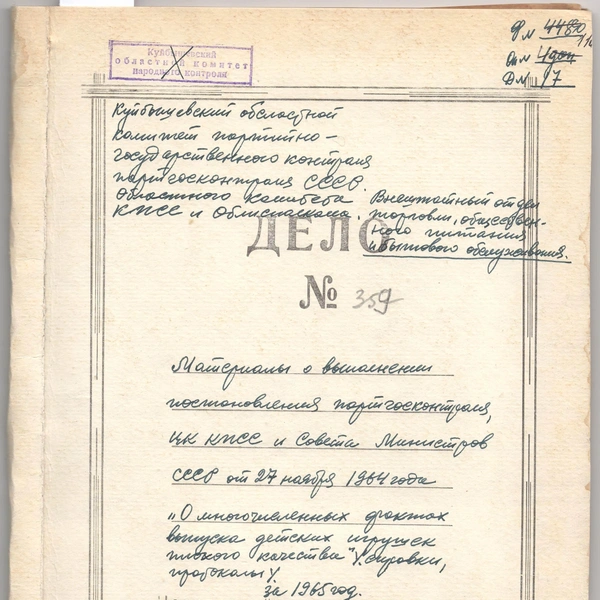 Ф № 4480
Оп №
Д № 17
Куйбышевский
областной комитет
народного контроля
Куйбышевский областной
комитет партийно-
государственного контроля
партгосконтроля СССР
Областного комитета
КПСС и Облисполкома.
Внештатный отдел
торговли, обществен-
ного питания
и бытового обслуживания.
ДЕЛО
№ 359
Материалы о выполнении
постановления партгосконтроля,
ЦК КПСС и Совета Министров
СССР от 27 ноября 1964 года
"О многочисленных фактах
выпуска детских игрушек
плохого качества" /справки,
протоколы/.
за 1965 год.